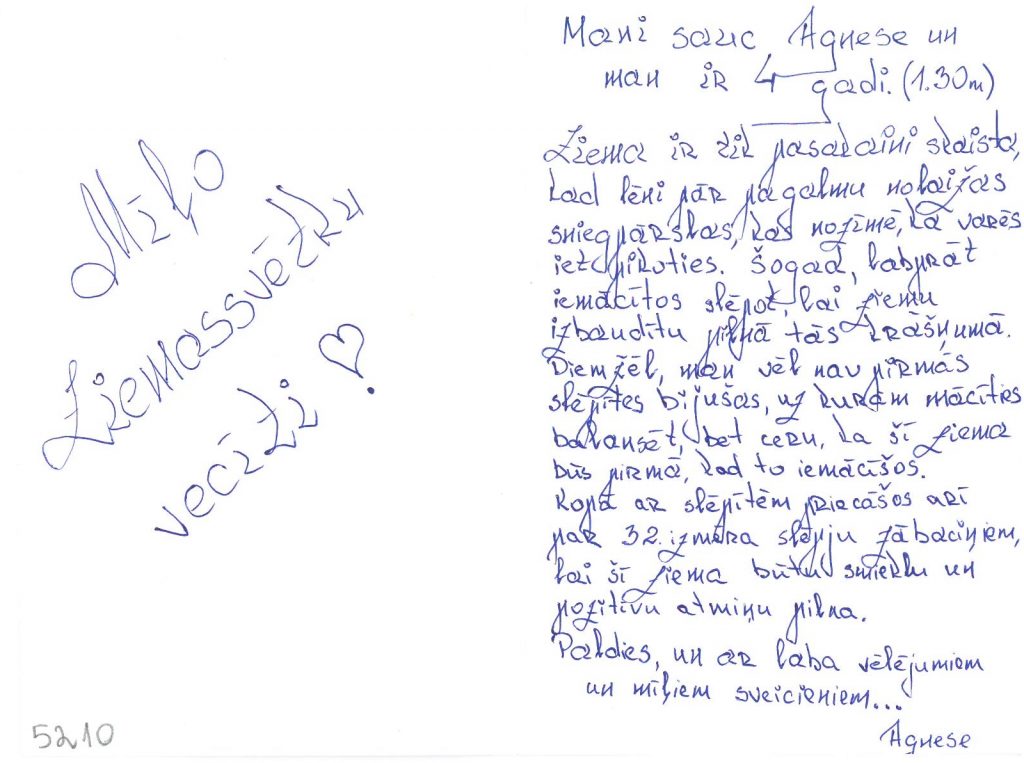 Mīļo
Ziemassvētku
vecīti ♡!
5210
Mani sauc Agnese un
man ir 4 gadi. (1.30m)
Ziema ir tik pasakaini skaista,
kad lēni pār pagalmu nolaižas
sniegpārslas, kas nozīmē, ka varēs
iet pikoties. Šogad, labprāt
iemācītos slēpot, lai ziemu
izbaudītu pilnā tās krāšņumā.
Diemžēl, man vēl nav pirmās
slēpītes bijušas, uz kurām mācīties
balansēt, bet ceru, ka šī ziema
būs pirmā, kad to iemācīšos.
Kopā ar slēpītēm priecāšos arī
par 32. izmēra slēpju zābaciņiem,
lai šī ziema būtu smieklu un
pozitīvu atmiņu pilna.
Paldies, un ar laba vēlējumiem
un mīļiem sveicieniem...
Agnese